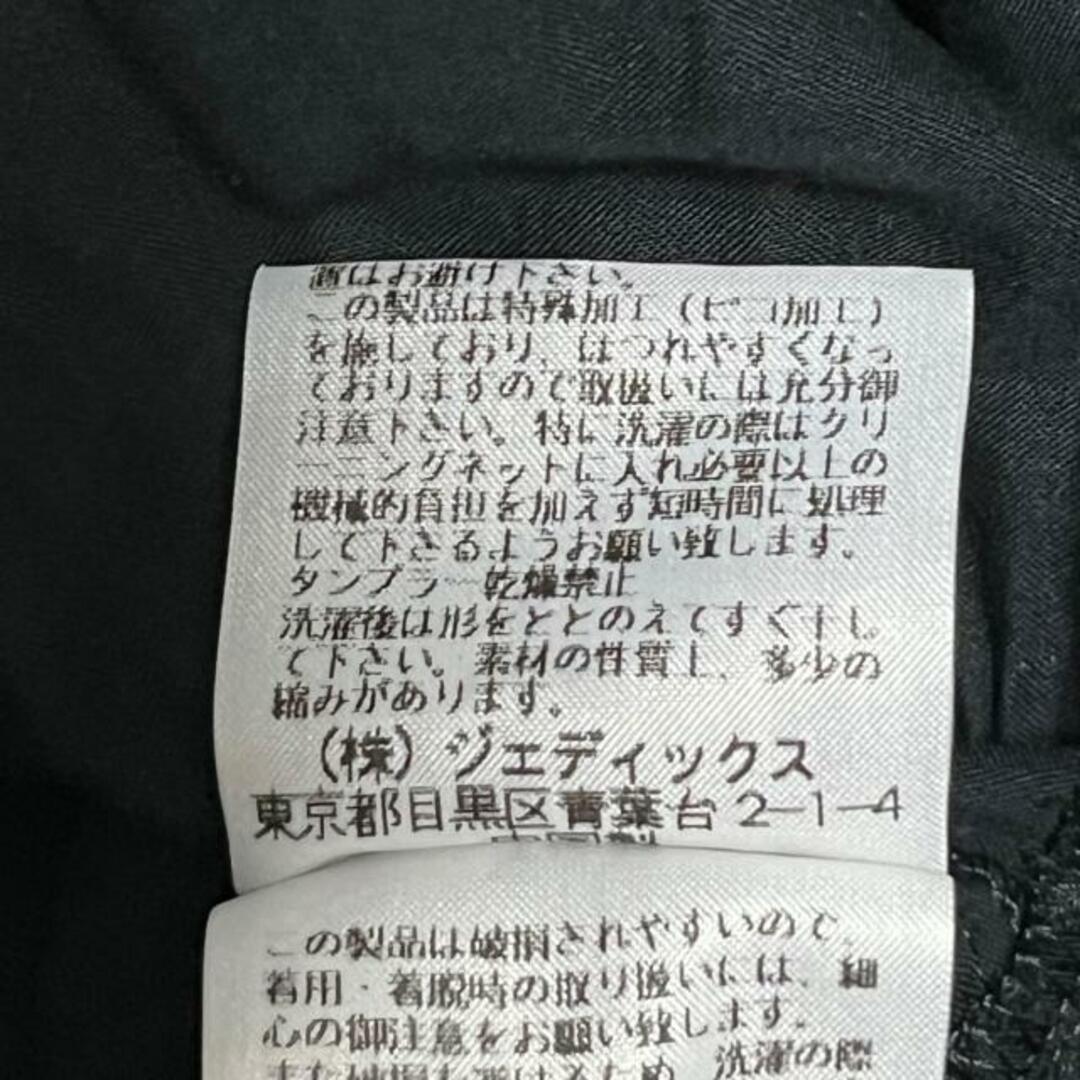 はお避け下さい。
この製品は特殊加工(ピコ加工)
を施しており、ほつれやすくなっ
ておりますので取扱いには充分御
注意下さい。特に洗濯の際はクリ
ーニングネットに入れ必要以上の
機械的負担を加えず短時間に処理
して下さるようお願い致します。
タンブラー乾燥禁止
洗濯後は形をととのえてすぐ干し
て下さい。素材の性質上、多少の
縮みがあります。
(株)ジェディックス
東京都目黒区青葉台2-1-4
この製品は破損されやすいので、
着用・着脱時の取り扱いには、細
心の御注意をお願い致します。
また破損を避けるため、洗濯の際